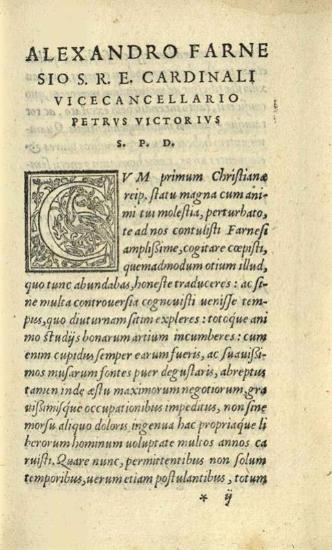 ALEXANDRO FARNE
SIO S. R. E. CARDINALI
VICECANCELLARIO
PETRVS VICTORIVS
S. P. D.
CVM primum Christianæ
reip. statu magna cum ani
mi tui molestia, perturbato,
te ad nos contulisti Farnesi
amplissime, cogitare cœpisti,
quemadmodum otium illud,
quo tunc abundabas, honeste traduceres: ac si
ne multa controversia cognouisti uenisse tem
pus, quo diuturnam sitim expleres: totoque ani
mo studijs bonarum artium incumberes: cum
enim cupidus semper earum fueris, ac suauissi
mos musarum fontes puer degustaris, abreptus
tamen inde æstu maximorum negotiorum, gra
uissimisque occupationibus impeditus, non sine
morsu aliquo doloris ingenua hac propriaque li
berorum hominum uoluptate multos annos ca
ruisti. Quare nunc, permittentibus non solum
temporibus, uerum etiam postulantibus, totum
* ij